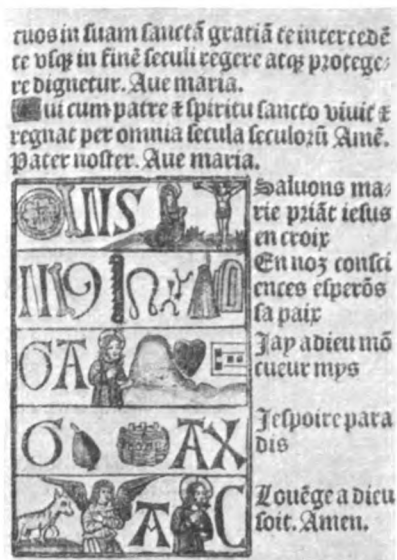 tuos in suam sanctā gratiā te intercedē
te vsqꝫ in finē seculi regere atqꝫ protege⸗
re dignetur. Aue maria.
Qui cum patre ⁊ spiritu sancto viuit ⁊
regnat per omnia secula seculorū Amē.
Pater noster. Aue maria.
Saluons ma⸗
rie priāt iesus
en croix
En noz consci
ences esperōs
sa paix
Jay a dieu mō
cueur mys
Jespoire para
dis
Louēge a dieu
soit. Amen.
G A
G A X
A C